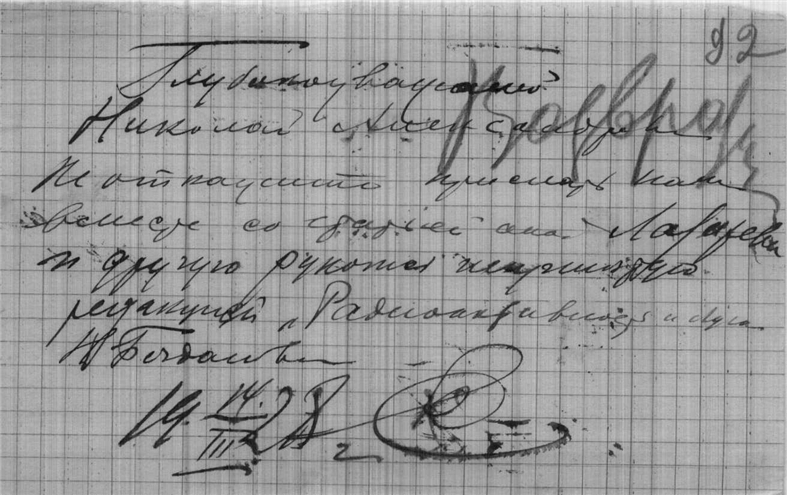 92
Глубокоуважаемый
Возврат
Николай Александрович
Не откажите прислать нам
вместе со статьей акад. Лазарева
и другую рукопись
редакцией „Радиоактивность и
Н Богданович
19 14/III 28 г